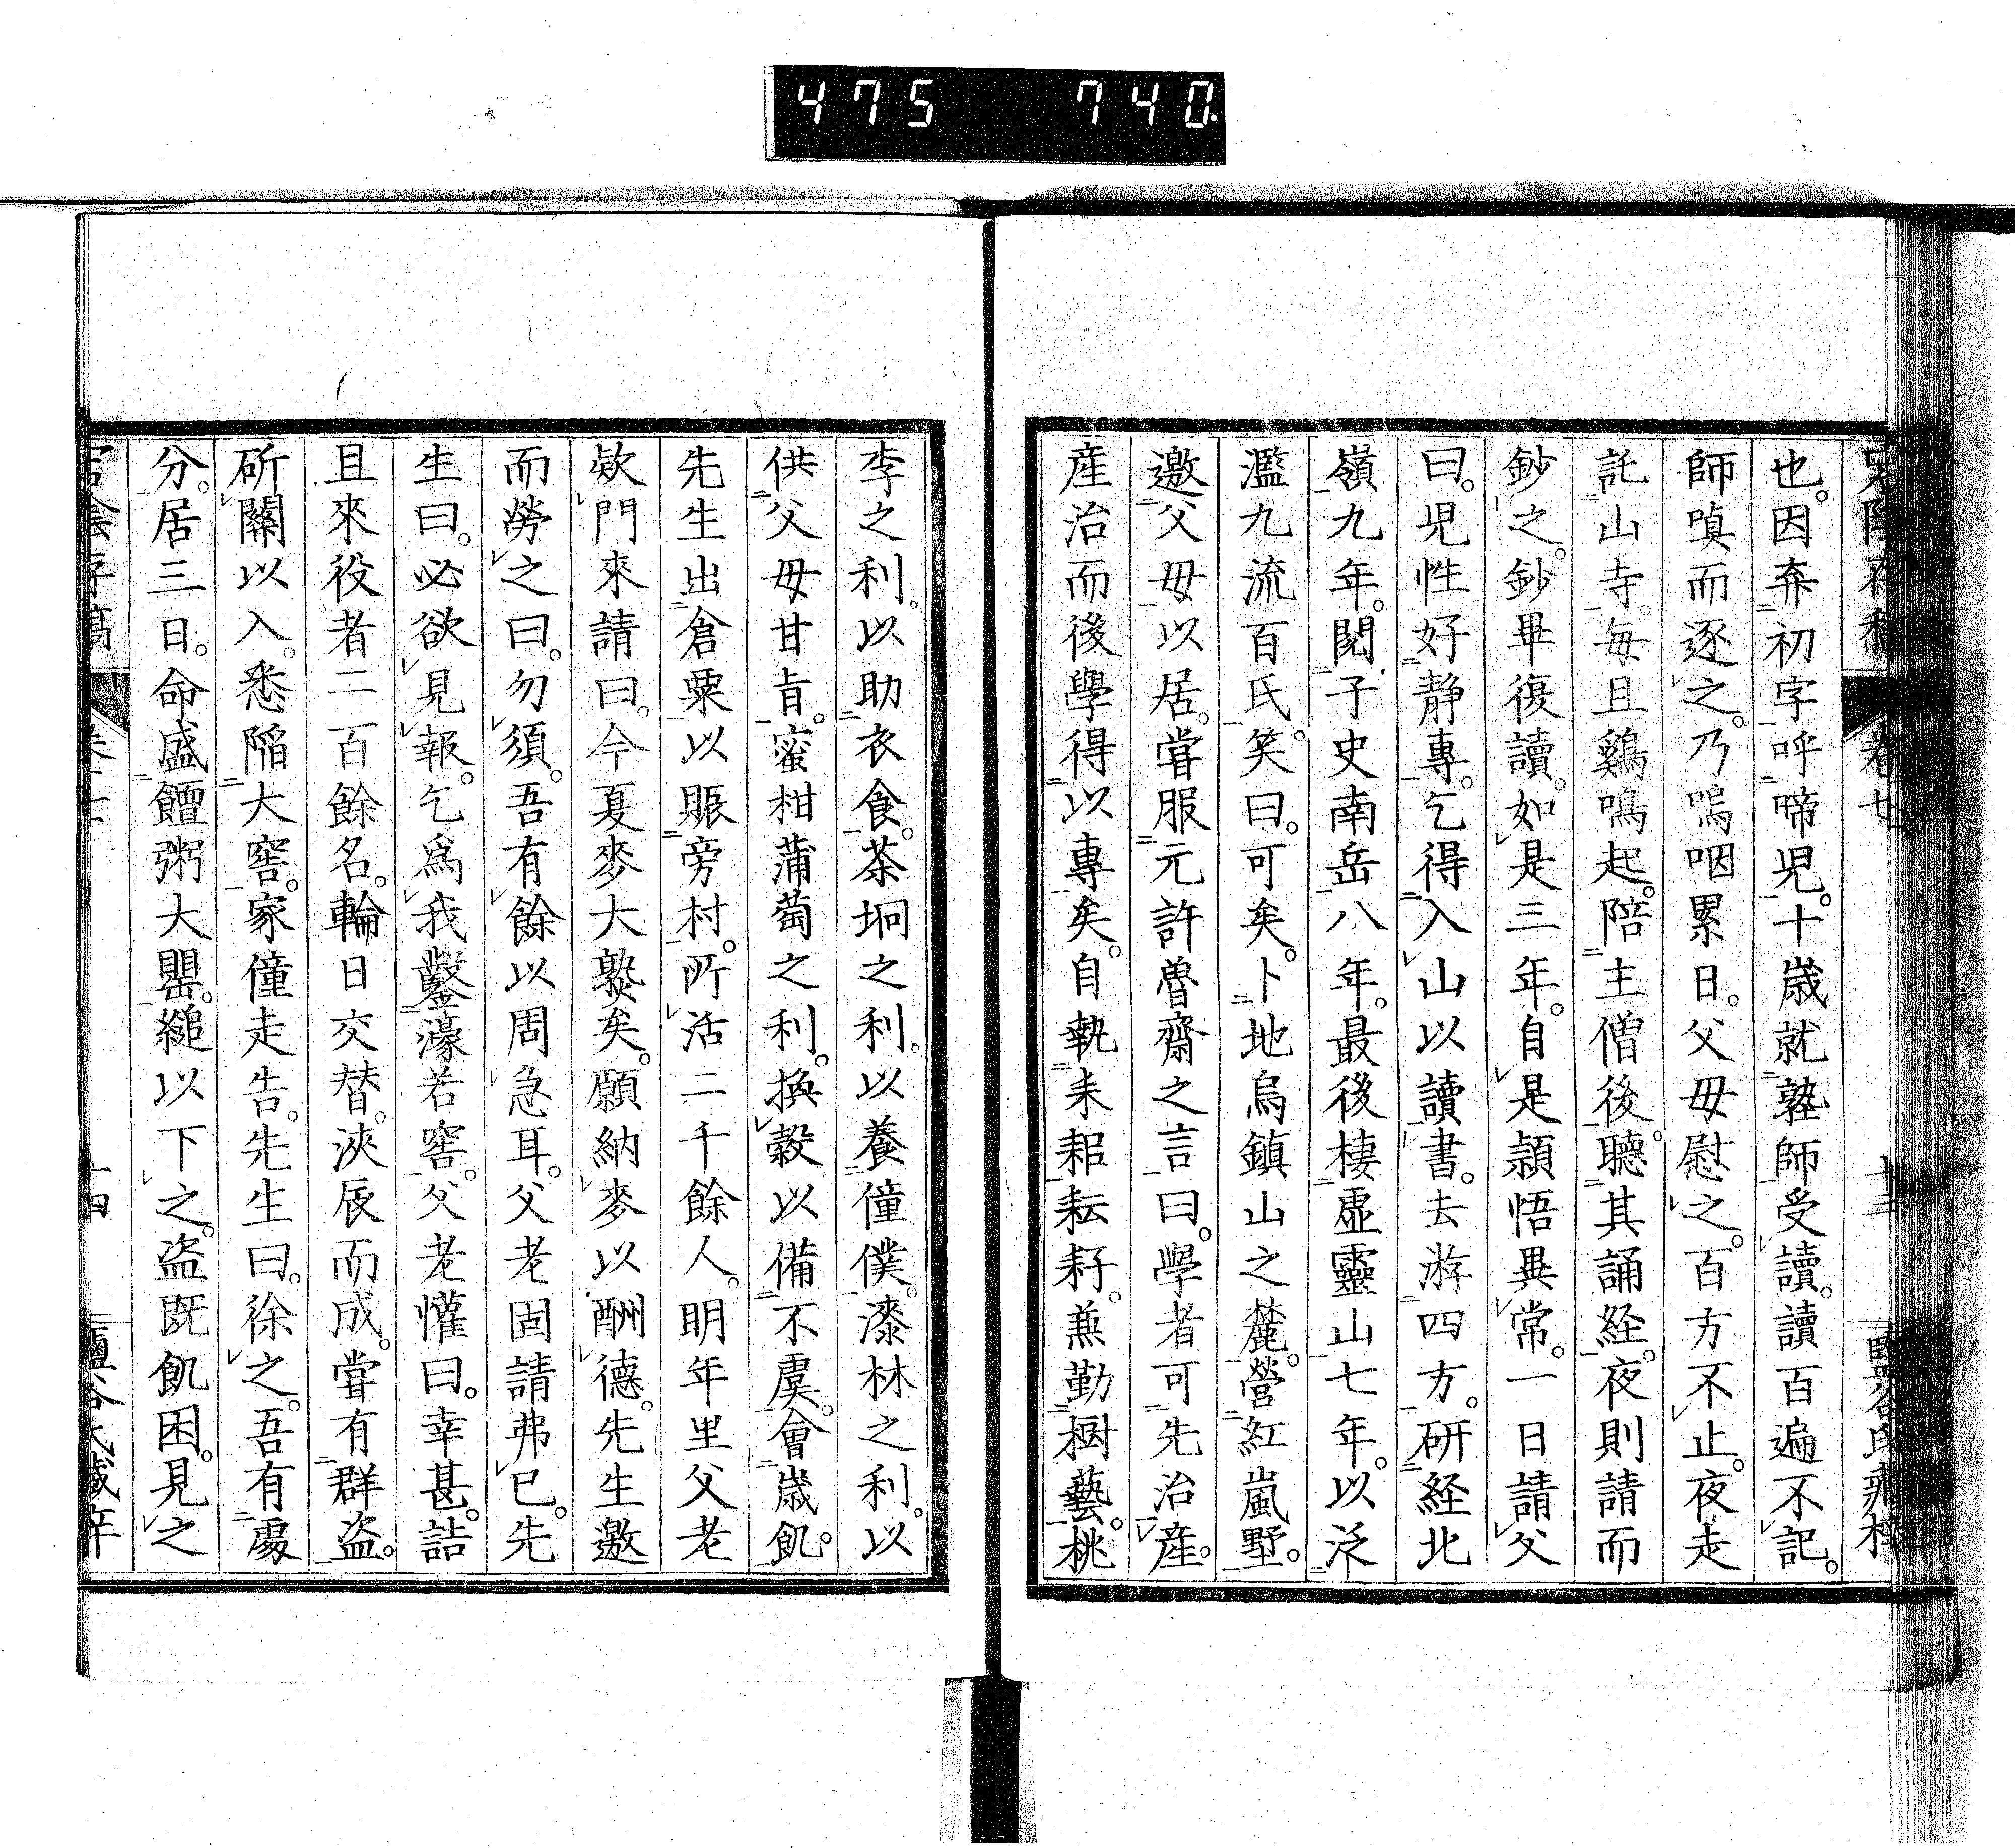 475 740.
也。因弃初字呼啼児。十歳就塾師受讀。讀百遍不記。
師嗔而逐之。乃嗚咽累日。父母慰之。百方不止。夜走
託山寺。每且鷄鳴起。陪主僧後。聽其誦経。夜則請而
鈔之。鈔畢復讀。如是三年。自是頴悟異常。一日請父
曰。児性好静專。乞得入山以讀書。去游四方。研経北
嶺九年。閲子史南岳八年。最後棲虛靈山七年。以泛
濫九流百氏。笑曰。可矣。卜地烏鎮山之麓。營紅嵐墅。
邀父母以居。甞服元許魯齋之言曰。學者可先治產。
産治而後學得以專矣。自執耒耜耘耔。兼勤樹藝。桃
李之利。以助衣食。茶坰之利。以養僮僕。漆林之利。以
供父母甘旨。蜜柑蒲萄之利。換穀以備不虞。會歳飢。
先生出倉粟以賑旁村。所活二千餘人。明年里父老
欵門來請曰。今夏麥大熟矣。願納麥以酬德。先生邀
而勞之曰。勿須。吾有餘以周急耳。父老固請弗已。先
生曰。必欲見報。乞爲我鑿濠若窖。父老懽曰。幸甚。詰
且來役者二百餘名。輪日交替。浹辰而成。甞有群盗。
斫關以入。悉陥大窖。家僮走告。先生曰。徐之。吾有處
分。居三日。命盛饘粥大甖。縋以下之。盗既飢困。見之